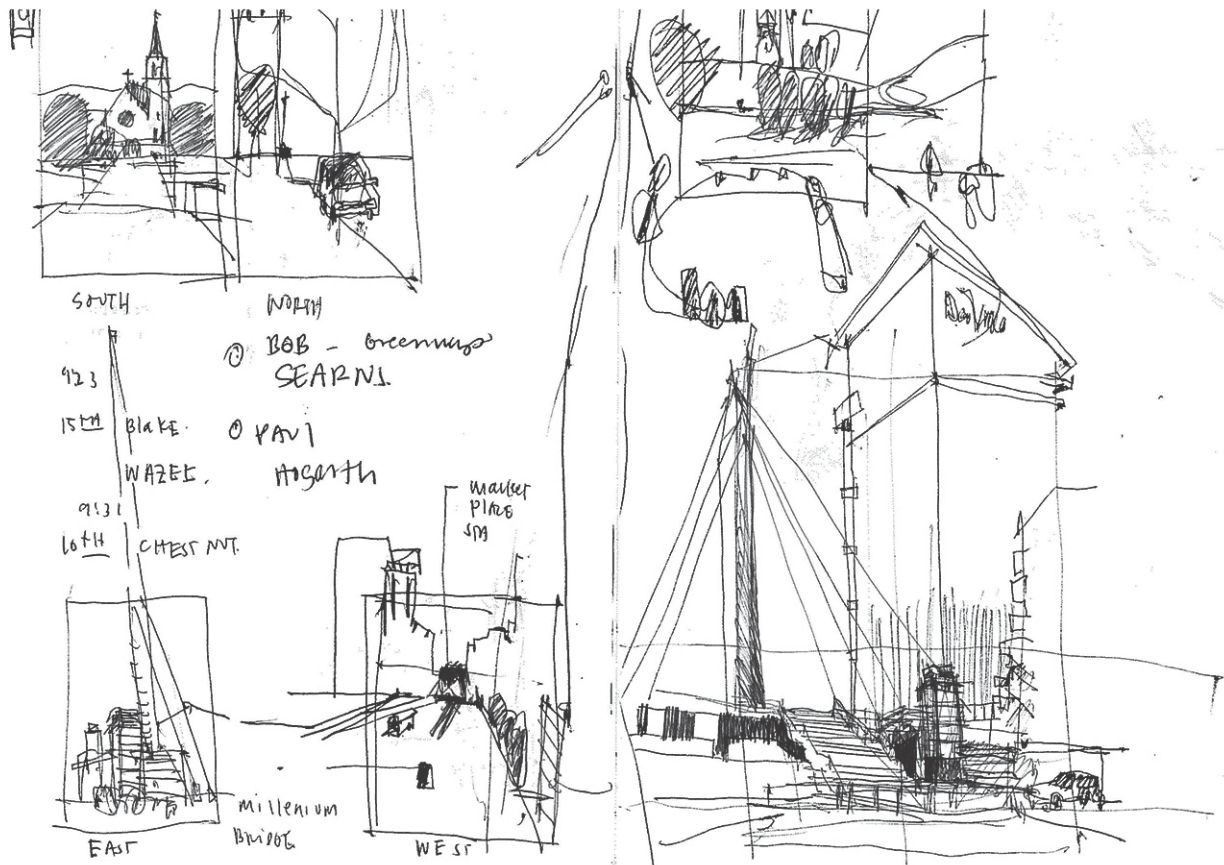 SOUTH
NORTH
BOB - Greenways
SEARNS.
923
15TH Blake.
WAZEE.
PAUL
Hogarth
9:31
16TH CHESTNUT.
market
PLACE
SPA
EAST
millenium
BRIDGE
WEST
DaVita